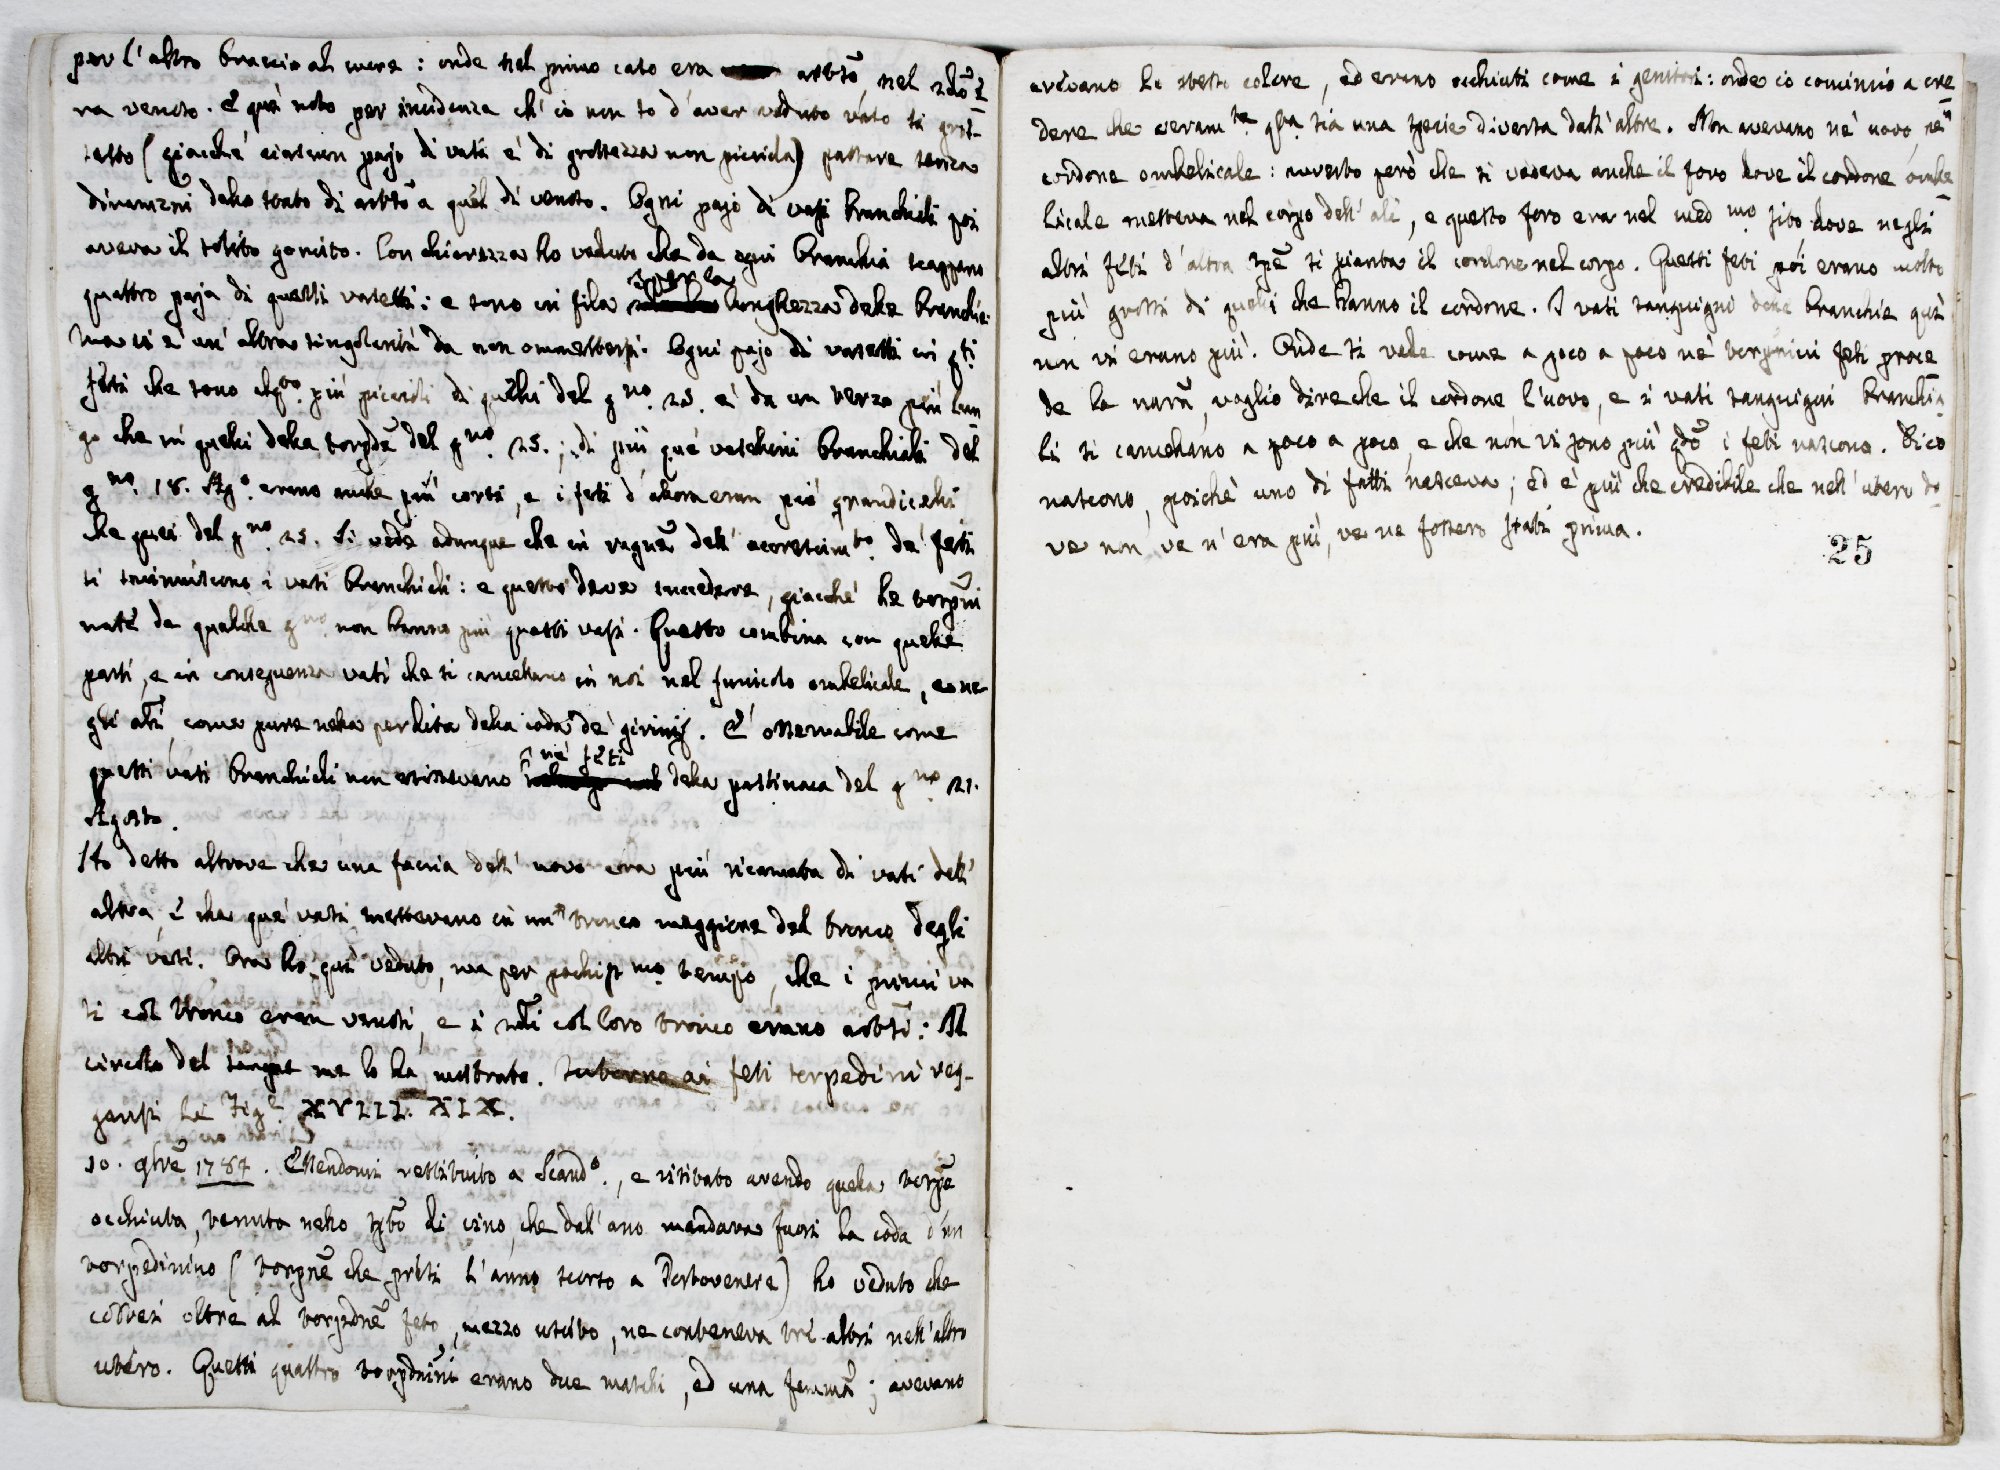 per l'altro braccio al mare : onde nel primo caso era artso, nel 2do e
ra venoso. E quì noto per incidenza ch' io non so d'aver veduto vaso sì gros-
sotto (giacchè ciascun pajo di vasi è di grossezza non piccola) passare senza
diramzni dallo stato di artso a quel di venoso. Ogni pajo di vasi branchiali poi
aveva il solito gomito. Con chiarezza ho veduto che da ogni branchia scappano
quattro paja di questi vasetti : e sono in fila per la lunghezza delle branchie.
Ma vi è un' altra singolarità da non ommettersi. Ogni pajo di vasetti in qti
feti che sono alqto più piccoli di quelli del gno 25. è da un terzo più lun
go che in quelli della torpde del gno 25. ; di più que' vasellini branchiali del
gno 18. Ago. erano anche più corti, e i feti d'allora eran più grandicelli
che quei del gno 25. Si vede adunque che in ragne dell' accrescimto de' feti
si sminuiscono i vasi branchiali : e questo deve succedere, giacchè le torpni
nate da qualche gno non hanno più questi vasi. Questo combina con quelle
parti, e in conseguenza vasi che si cancellano in noi nel funicolo ombelicale, e ne
gli ali, come pure nella perdita della coda de' girini. E' osservabile come
questi vasi branchiali non esistevano ne' feti della pastinaca del gno 21.
Agosto.
Ho detto altrove che una faccia dell' uovo era più ricamata di vasi dell'
altra, e che que' vasi mettevano in un tronco maggiore del tronco degli
altri vasi. Ora ho quì veduto, ma per pochissmo tempo, che i primi va
si col tronco eran venosi, e i 2di col loro tronco erano artsi : Il
circolo del sangue me lo ha mostrato. Intorno ai feti torpedini veg-
gansi le Fige XVIII. XIX.
10. 9bre 1784. Essendomi restituito a Scando., e visitato avendo quella torpe
occhiuta, venuta nello spto di vino, che dal' ano mandava fuori la coda d'un
torpedinino (torpne che presi l'anno scorso a Portovenere) ho veduto che
costei oltre al torpdne feto, mezzo uscito, ne conteneva tre altri nell'altro
utero. Questi quattro torpdnini erano due maschi, ed una femma ; avevano
avevano lo stesso colore, ed erano occhiuti come i genitori : onde io comincio a cre
dere che veramte qsta sia una specie diversa dall' altre. Non avevano nè uovo, nè
cordone ombelicale : avverto però che si vedeva anche il foro dove il cordone ombe
licale metteva nel corpo dell' ali, e questo foro era nel medmo sito dove negli
altri feti d'altra spe si pianta il cordone nel corpo. Questi feti poi erano molto
più grossi di quelli che hanno il cordone. I vasi sanguigni delle branchie quì
non vi erano più. Onde si vede come a poco a poco ne' torpnini feti proce
de la nara, voglio dire che il cordone, l'uovo, e i vasi sanguigni branchia
li si cancellano a poco a poco, e che non vi sono più qdo i feti nascono. Dico
nascono, poichè uno di fatti nasceva ; ed è più che credibile che nell' utero do
ve non ve n'era più, ve ne fossero stati prima.
25